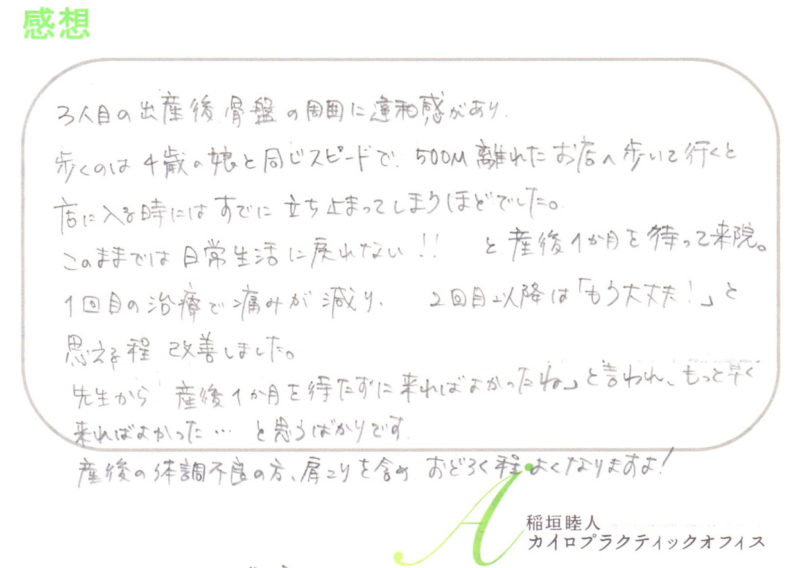 感想
3人目の出産後骨盤の周囲に違和感があり
歩くのは4歳の娘と同じスピードで、500M離れたお店へ歩いて行くと
店に入る時にはすでに立ち止まってしまうほどでした。
このままでは日常生活に戻れない!! と産後1か月を待って来院。
1回目の治療で痛みが減り、 2回目以降は「もう大丈夫!」と
思える程改善しました。
先生から「産後1か月を待たずに来ればよかったね」と言われ、もっと早く
来ればよかった… と思うばかりです
産後の体調不良の方、肩こりを含め おどろく程よくなりますよ!
稲垣睦人
カイロプラクティックオフィス